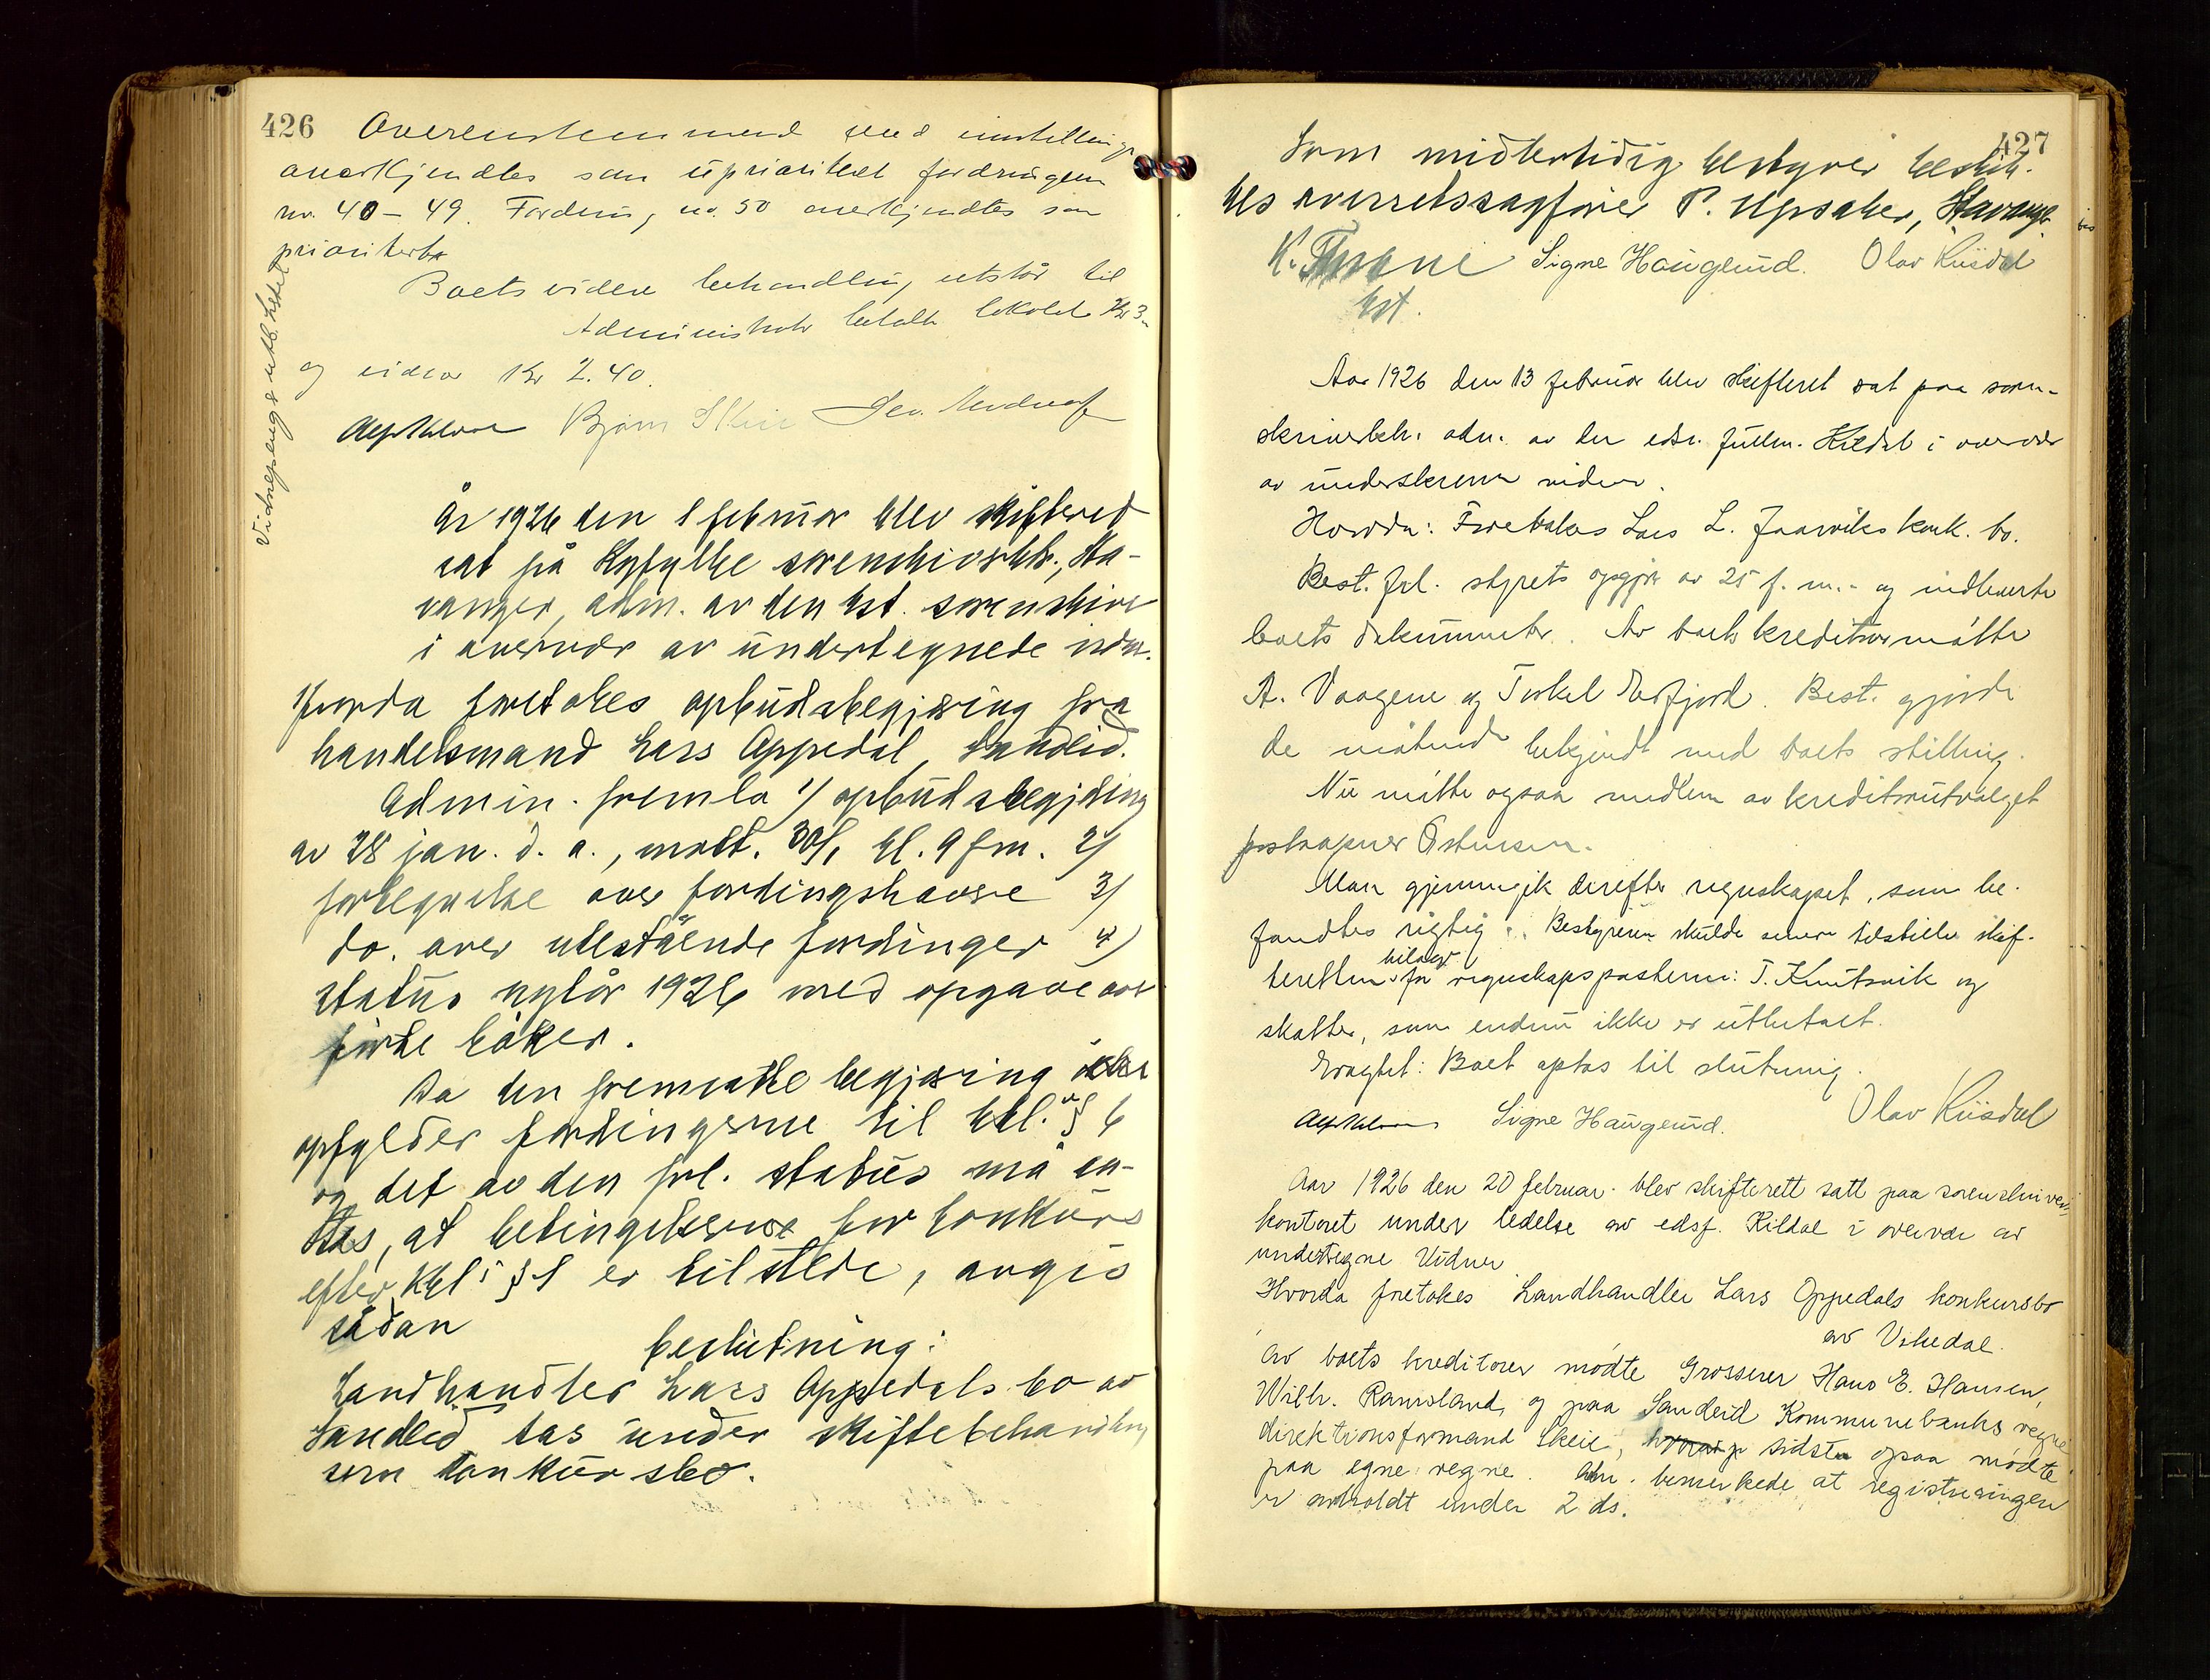 426
Overensstemmend med innstilling
anerkjendtes som uprioritert fordringen
nr. 40 - 49. Fordring nr. 50 anerkjendtes som
prioritert.
Boets videre behandling utstår til
Administrator betalte lokale Kr 3.-
og vidner Kr 2.40.
Bjørn Skeie
Vidnepenge utb. Lehd
År 1926 den 1 februar blev skifteret
sat på Ryfylke sorenskriverktr., Sta-
vanger, adm. av den kst. sorenskriver
i overvær av undertegnede vidn.
Hvorda foretokes opbudsbegjæring fra
handelsmand Lars Oppedal, Sandeid.
Admin. fremla 1/ opbudsbegjæring
av 28 jan. d. a., mott. 30/1 kl. 9 fm. 2/
fortegnelse over fordringshavere 3/
do. over utestående fordringer 4)
status nytår 1926 med opgave over
førte bøker.
Da den fremsatte begjæring ikke
opfylder fordringerne til kkl. § 6
og det av den frl. status må an-
tas, at betingelserne for konkurs
efter kkl. § 1 er tilstede, avgis
sådan
beslutning:
Landhandler Lars Oppedals bo av
Sandeid tas under skiftebehandling
som konkursbo.
427
Som midlertidig bestyrer beskik-
kes overretssagfører P. Upsaker, Stavanger.
K. Thrane Signe Haugerud. Olav Kiisdal
kst.
Aar 1926 den 13 februar blev skifteret sat paa soren-
skriverktr. adm. av den edsv. fullm. Kildal i overvær
av underskrevne vidner.
Hvorda: Foretokes Lars L. Jaarviks konk. bo.
Best. frl. styrets opgjør av 25 f. m. - og indleverte
boets dokumenter. Av boets kreditorer møtte
A. Vaagene og Torkel Erfjord. Best. gjorde
de møtende bekjendt med boets stilling.
Nu møtte ogsaa medlem av kreditorutvalget
postaapner Østensen.
Man gjennemgik derefter regnskapet, som be-
fandtes rigtig. Bestyreren skulde senere tilstille skif-
teretten bilag for regnskapsposterne: T. Knutsvik og
skatter, som endnu ikke er utbetalt.
Eragtet: Boet optas til slutning.
Signe Haugerud. Olav Kiisdal
Aar 1926 den 20 februar blev skifterett satt paa sorenskriver-
kontoret under ledelse av edsf. Kildal i overvær av
undertegne Vidner
Hvorda foretokes Landhandler Lars Oppedals konkursbo
av Vikedal.
Av boets kreditorer mødte Grosserer Hans E. Hansen,
Wilh. Ramsland, og paa Sandeid Kommunebanks vegne
direktionsformand Skeie, sidste ogsaa mødte
paa egne vegne. Adm. bemerkede at registreringen
er avholdt under 2 ds.